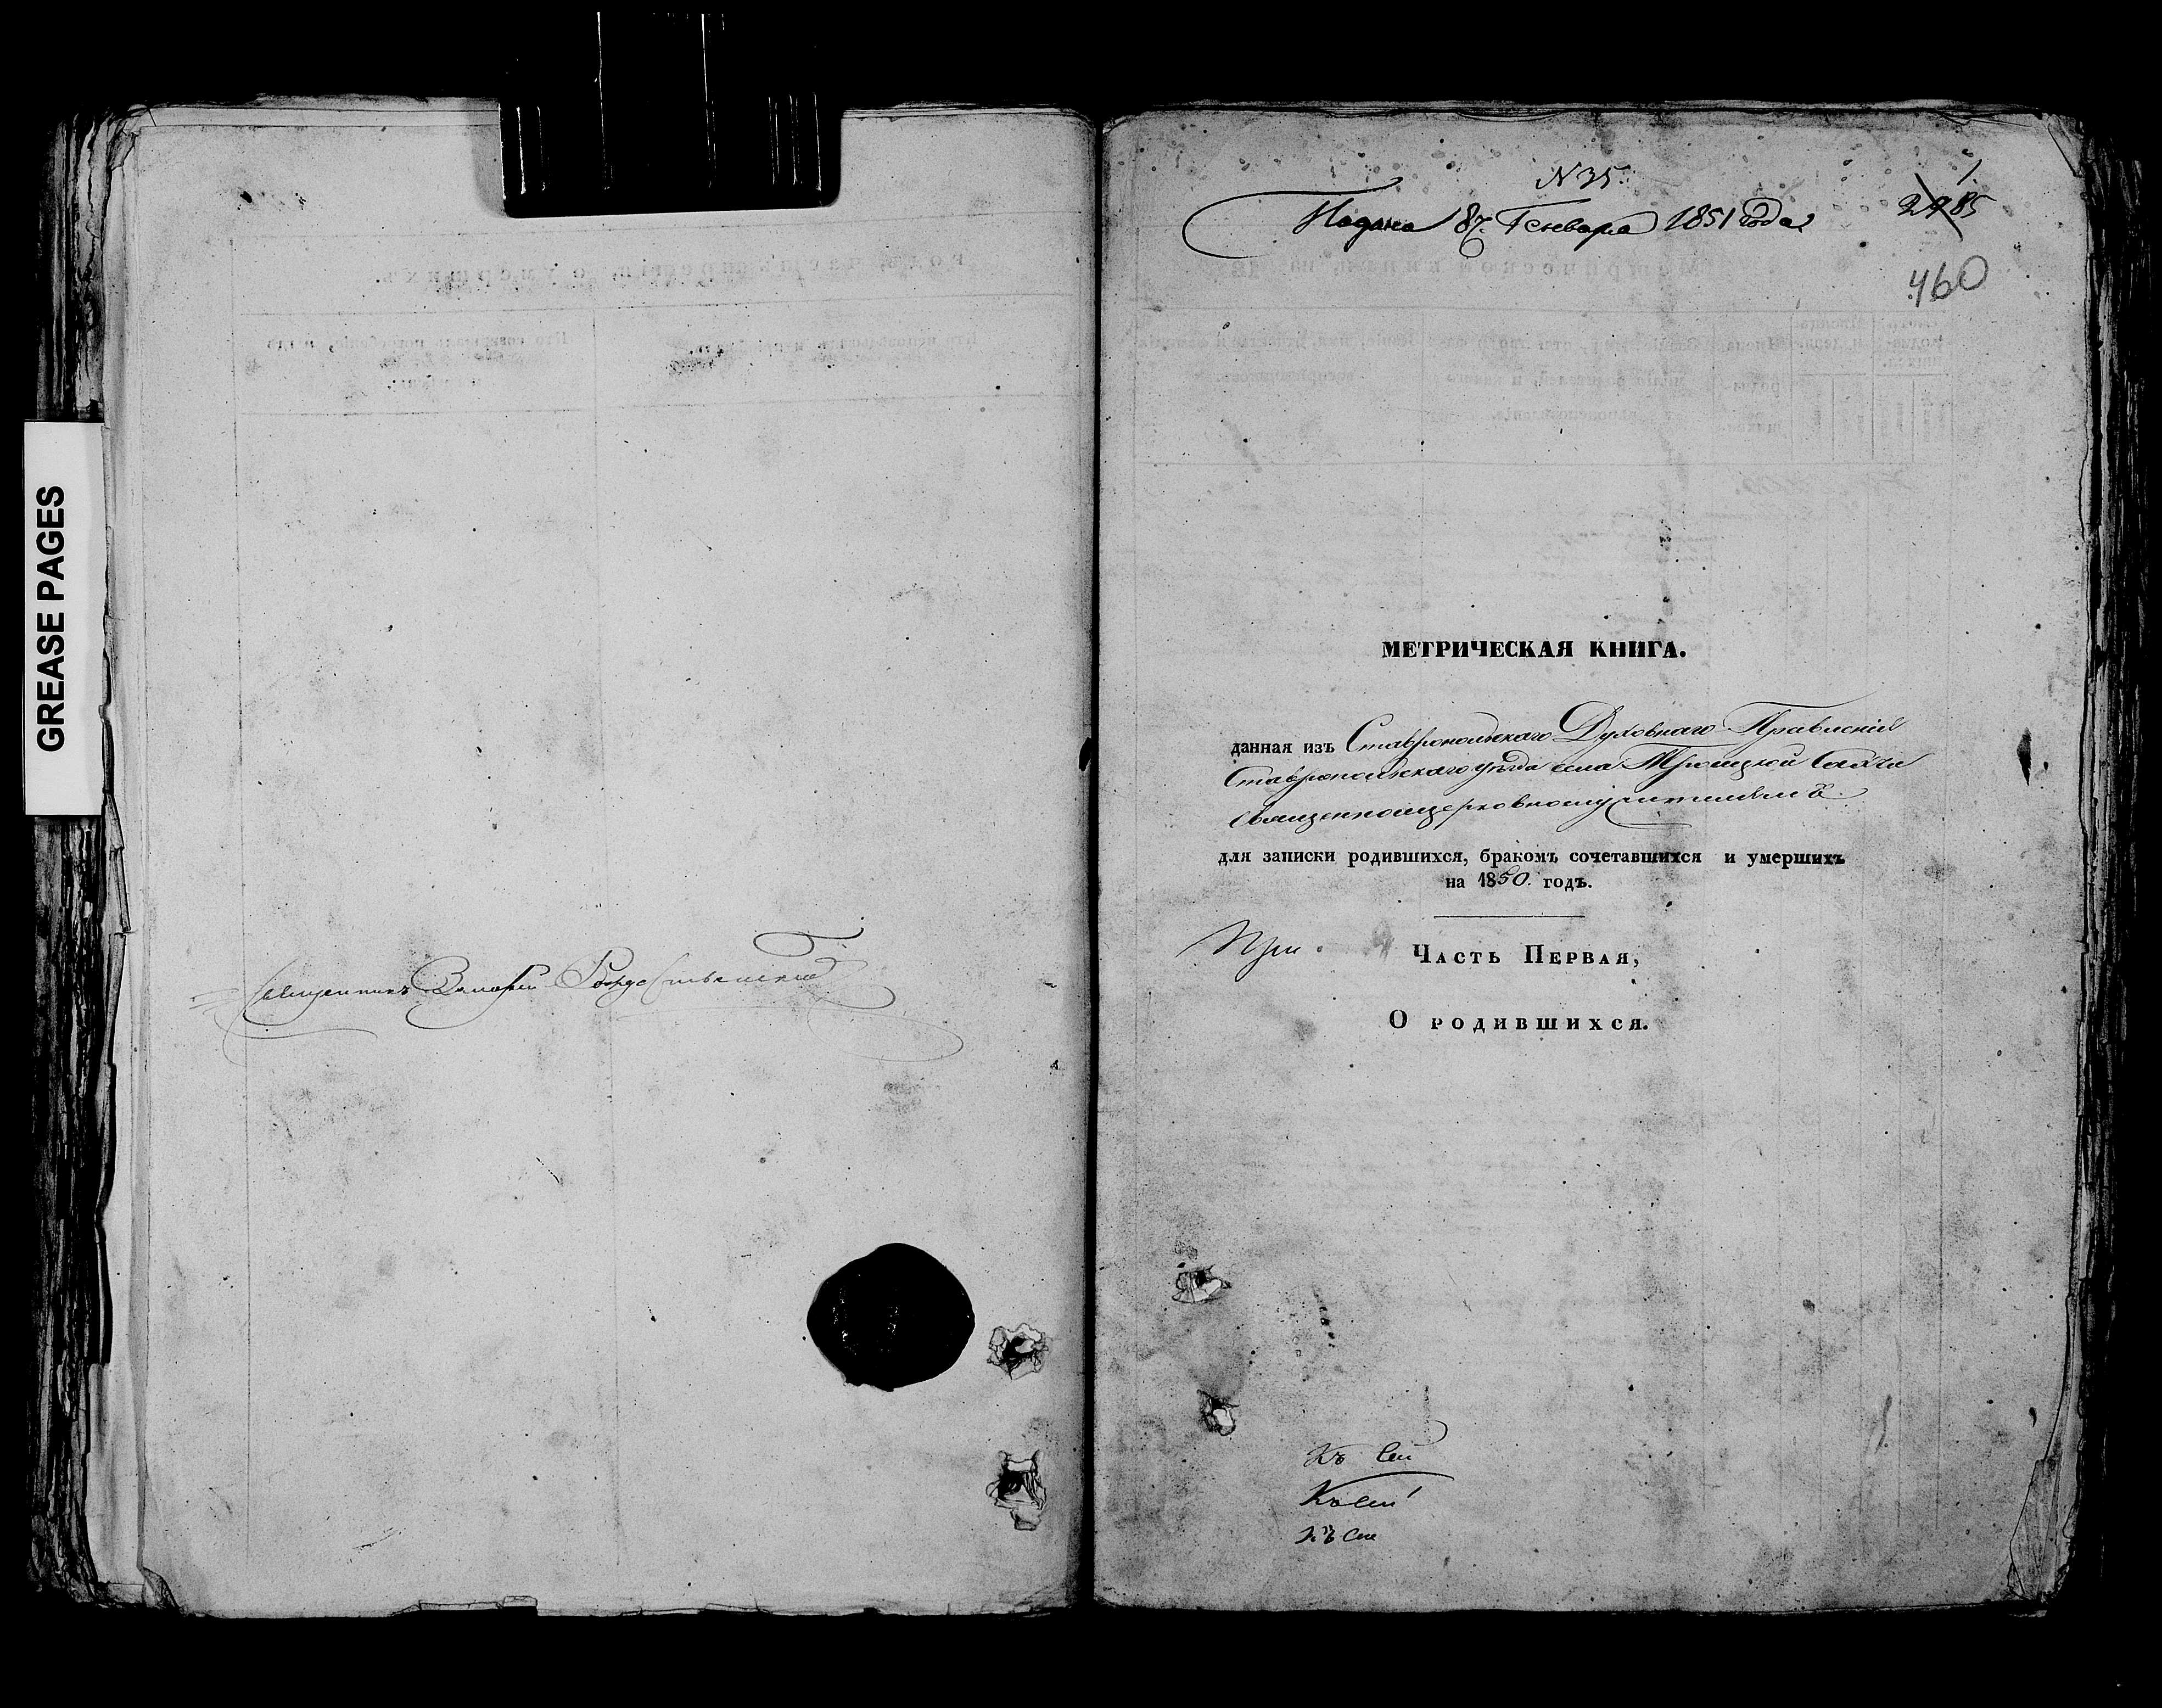 GREASE PAGES
Священникъ Рождественский
N 35.
Подана 8. Генваря 1851 года
1
2485
460
МЕТРИЧЕСКАЯ КНИГА.
данная изъ Ставропольскаго Духовнаго Правленія
Ставропольскаго уѣзда села Троицкой Солчи
священноцерковнослужителямъ
для записки родившихся, бракомъ сочетавшихся и умершихъ
на 1850. годъ.
При
Часть Первая,
О родившихся.
Къ сей
Къ сей
Къ сей